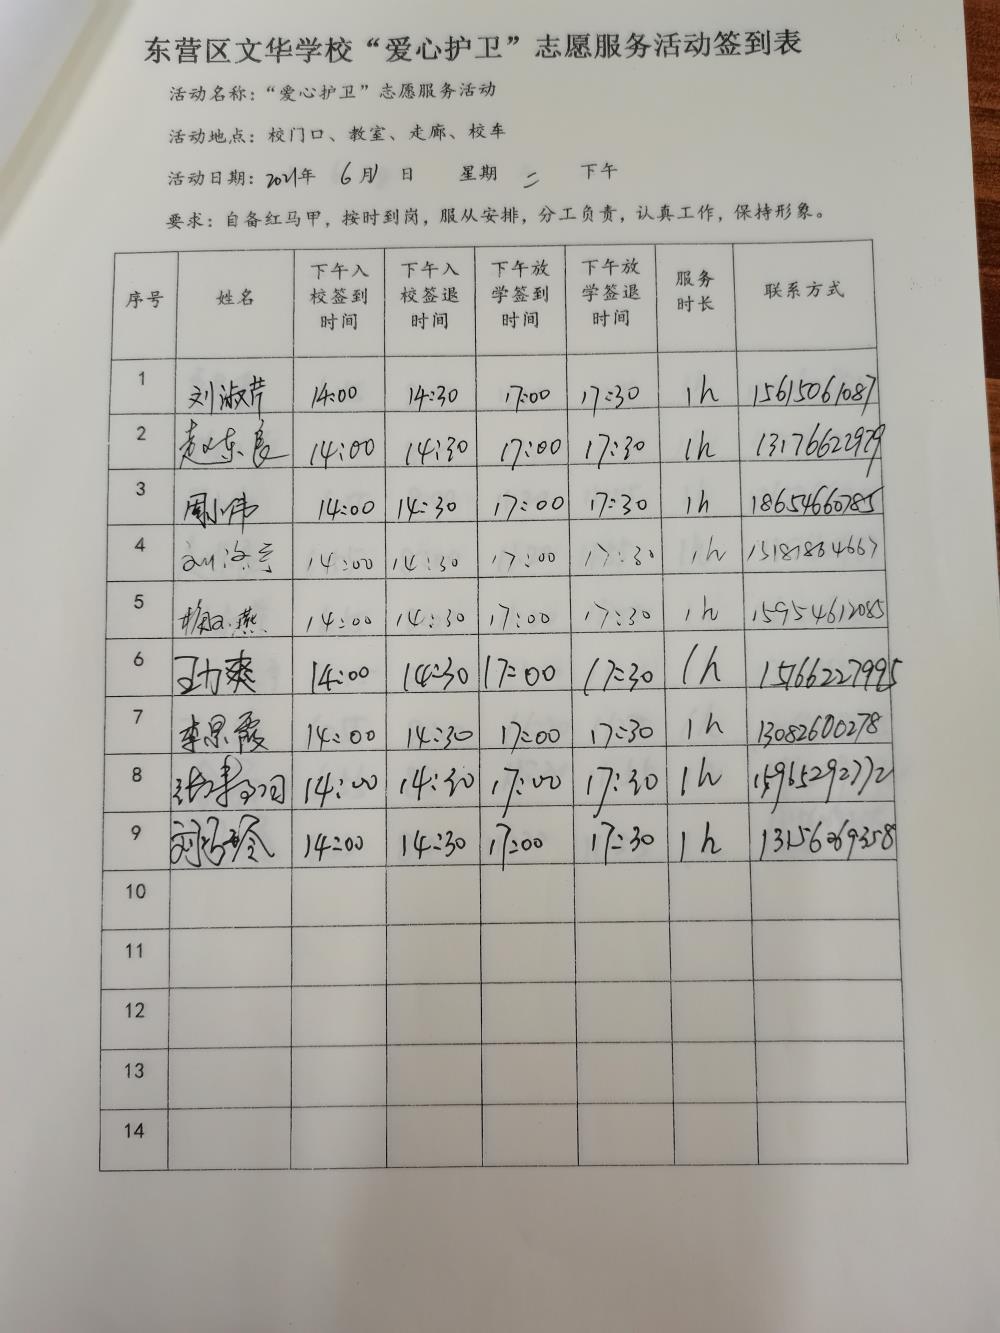 东营区文华学校“爱心护卫”志愿服务活动签到表
活动名称：“爱心护卫”志愿服务活动
活动地点：校门口、教室、走廊、校车
活动日期：2021年 6月1日 星期二 下午
要求：自备红马甲，按时到岗，服从安排，分工负责，认真工作，保持形象。
序号 姓名 下午入校签到时间 下午入校签退时间 下午放学签到时间 下午放学签退时间 服务时长 联系方式
1 刘淑芹 14:00 14:30 17:00 17:30 1h 15615061087
2 赵东良 14:00 14:30 17:00 17:30 1h 13176622979
3 周小伟 14:00 14:30 17:00 17:30 1h 18654660785
4 14:00 14:30 17:00 17:30 1h
5 14:00 14:30 17:00 17:30 1h 15954612085
6 王力爽 14:00 14:30 17:00 17:30 1h 15766227995
7 李思霞 14:00 14:30 17:00 17:30 1h 13082600278
8 14:00 14:30 17:00 17:30 1h 15965292772
9 14:00 14:30 17:00 17:30 1h 13156269358
10
11
12
13
14